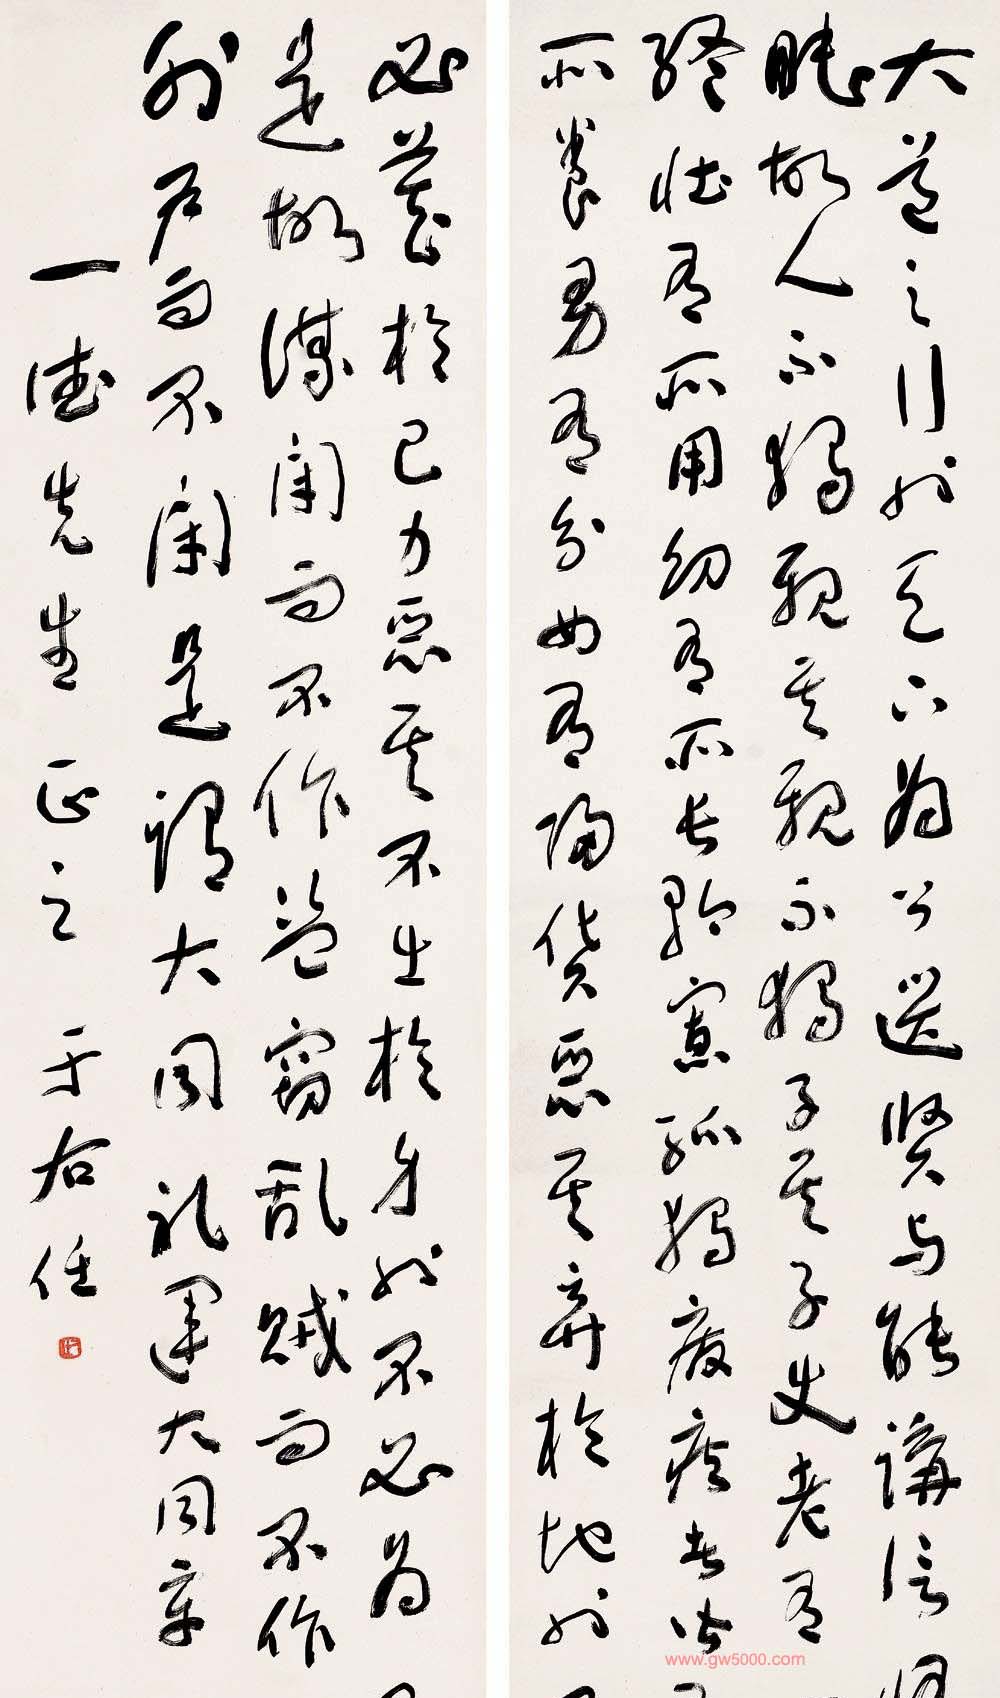 大道之行也天下為公選賢與能講信
睦故人不獨親其親不獨子其子使老有
終壯有所用幼有所長矜寡孤獨廢疾者皆
所養男有分女有歸貨惡其棄於地也
必藏於己力惡其不出於身也不必為
是故謀閉而不作盜竊乱賊而不作
外戶而不閉是謂大同礼運大同章
一德先生正之于右任
www.gw5000.com